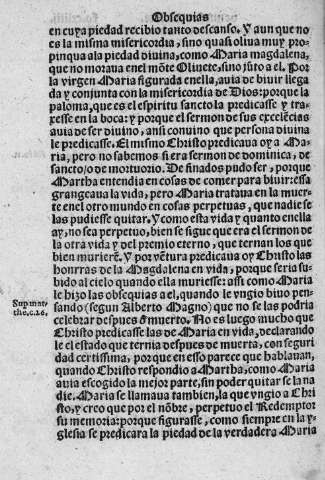 Obsequias
en cuya piedad recibio tanto descanso. Y aun que no
es la misma misericordia, sino quasi oliua muy pro-
pinqua ala piedad diuina, como Maria magdalena,
que no moraua enel mõte Oliuete, sino jũto a el. Por
la virgen Maria figurada enella, auia de biuir llega
da y conjunta con la misericordia de Dios: porque la
paloma, que es el espiritu sancto la predicasse y tra-
xesse en la boca: y porque el sermon de sus excelẽcias
auia de ser diuino, ansi conuino que persona diuina
le predicasse. El mismo Christo predicaua oy a Ma-
ria, pero no sabemos si era sermon de dominica, de
sancto/o de mortuorio. De finados pudo ser, porque
Martha entendia en cosas de comer para biuir: essa
grangeaua la vida, pero Maria trataua en la muer-
te enel otro mundo en cosas perpetuas, que nadie se
las pudiesse quitar. Y como esta vida y quanto enella
ay, no sea perpetuo, bien se sigue que era el sermon de
la otra vida y del premio eterno, que ternan los que
bien murierẽ. Y por vẽtura predicaua oy Christo las
honrras de la Magdalena en vida, porque seria su-
bido al cielo quando ella muriesse: assi como Maria
le hizo las obsequias a el, quando le vngio biuo pen-
sando (segun Alberto Magno) que no se las podria
celebrar despues ð muerto. No es luego mucho que
Christo predicasse las de Maria en vida, declarando
le el estado que ternia despues de muerta, con seguri
dad certissima, porque en esso parece que hablauan,
quando Christo respondio a Martha, como Maria
auia escogido la mejor parte, sin poder quitar se la na
die. Maria se llamaua tambien, la que vngio a Chri
sto, y creo que por el nõbre, perpetuo el Redemptor
su memoria: porque figurasse, como siempre en la y-
glesia se predicara la piedad de la verdadera Maria
Sup mat-
the.c.26.